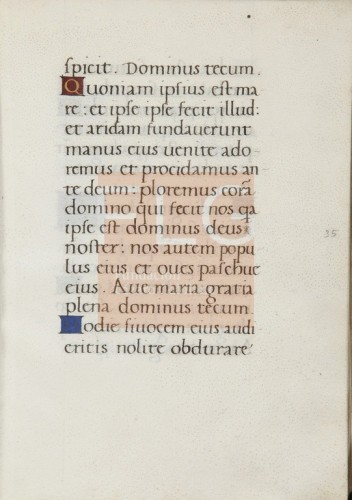 spicit. Dominus tecum.
Quoniam ipsius est ma
re: et ipse ipse fecit illud:
et aridam fundaverunt
manus eius venite ado
remus et procidamus an
te deum: ploremus corã
domino qui fecit nos qa
ipse est dominus deus
noster: nos autem popu
lus eius et oves pascue
eius. Ave maria gratia
plena dominus tecum.
Hodie si vocem eius audi
eritis nolite obdurare
35